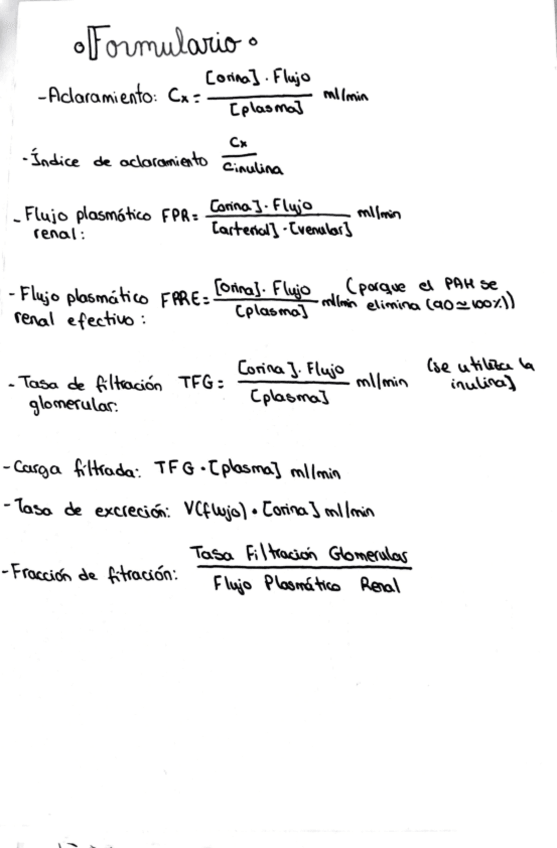 Formulario
-Aclaramiento: Cx = [orina] . Flujo / [plasma] ml/min
-Índice de aclaramiento Cx / Cinulina
- Flujo plasmático FPR = [orina] . Flujo / [arterial] - [venular] ml/min
renal:
- Flujo plasmático FPRE = [orina] . Flujo / [plasma] ml/min (porque el PAH se
renal efectivo: elimina (90≃100%))
- Tasa de filtración TFG = [orina] . Flujo / [plasma] ml/min (se utiliza la
glomerular: inulina]
- Carga filtrada: TFG . [plasma] ml/min
- Tasa de excreción: V(flujo) . [orina] ml/min
- Fracción de fitración: Tasa Filtración Glomerular / Flujo Plasmático Renal